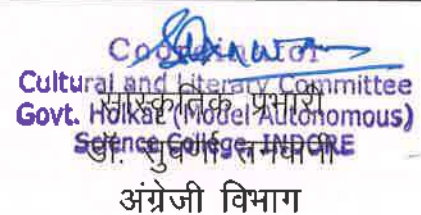 Coordinator
Cultural and Literary Committee
सांस्कृतिक प्रभारी
Govt. Holkar (Model Autonomous)
Science College, INDORE
डॉ. सुवर्णा तमघानी
अंग्रेजी विभाग